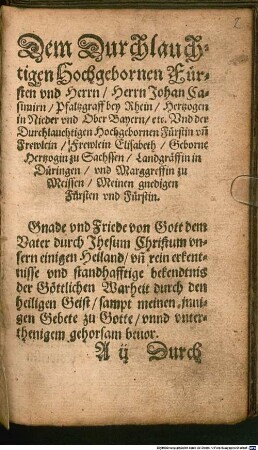 2
Dem Durchlauch-
tigen Hochgebornen Für-
sten vnd Herrn / Herrn Johan Ca-
simirn / Pfaltzgraff bey Rhein / Hertzogen
in Nieder vnd Ober Bayern / etc. Vnd der
Durchlauchtigen Hochgebornen Fürstin vñ
Frewlein / Frewlein Elisabeth / Geborne
Hertzogin zu Sachssen / Landgräffin in
Düringen / vnd Marggreffin zu
Meissen / Meinen gnedigen
Fürsten vnd Fürstin.
Gnade vnd Friede von Gott dem
Vater durch Jhesum Christum vn-
sern einigen Heiland / vñ rein erkent-
nisse vnd standhafftige bekendtnis
der Göttlichen Warheit durch den
heiligen Geist / sampt meinen jnni-
gen Gebete zu Gotte / vnnd vnter-
thenigem gehorsam beuor.
A ij Durch